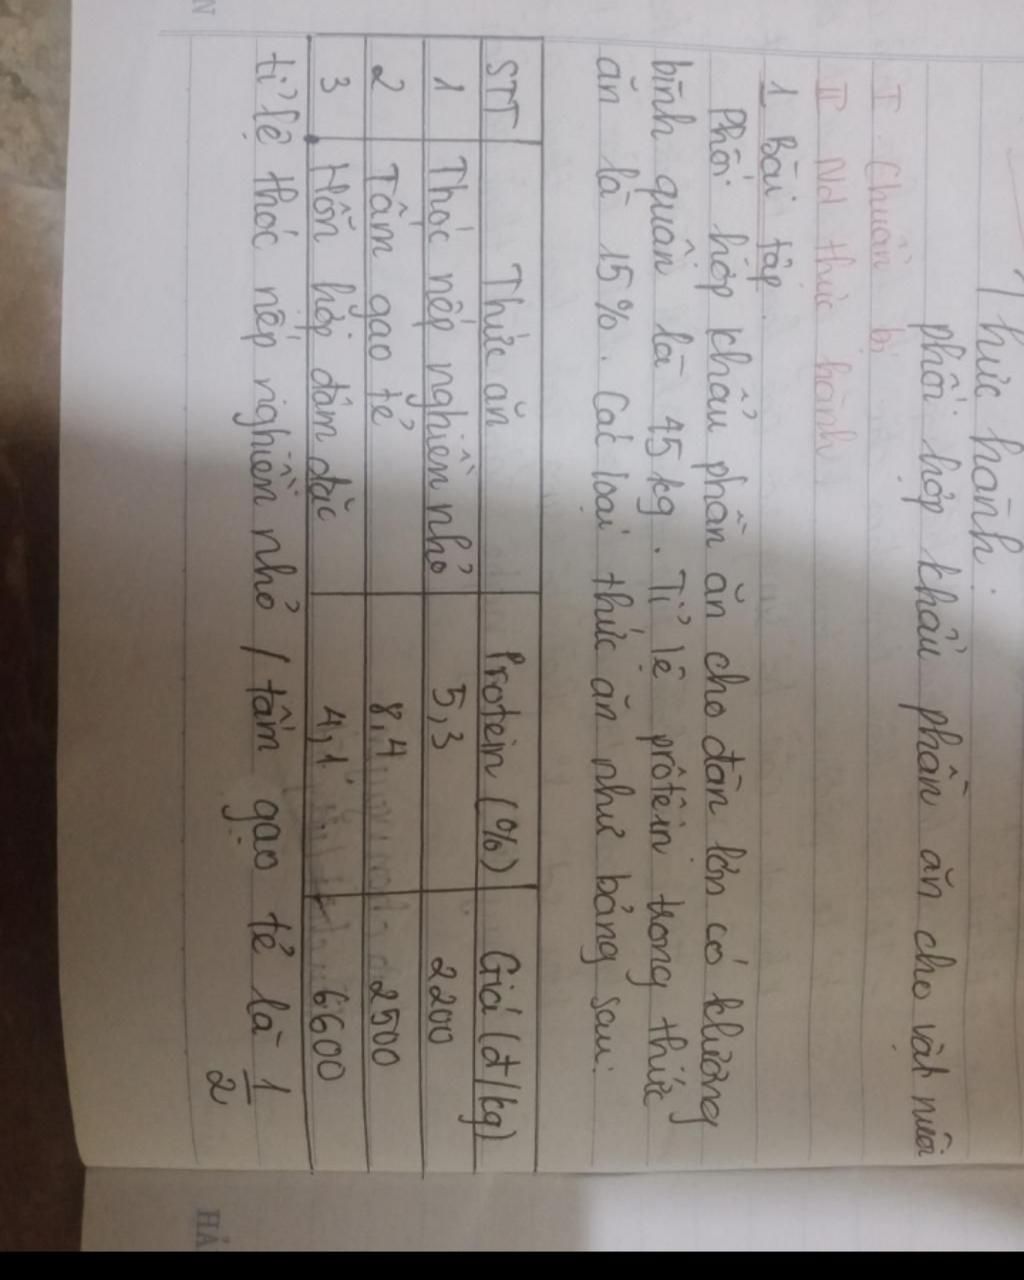 Thực hành.
phối hợp khẩu phần ăn cho vật nuôi
I Chuẩn bị
II Nd thực hành
1 Bài tập.
Phối hợp khẩu phần ăn cho đàn lợn có klượng
bình quân là 45kg. Tỉ lệ prôtêin trong thức
ăn là 15%. Các loại thức ăn như bảng sau:
STT Thức ăn Protein (%) Giá (đ/kg)
1 Thóc nếp nghiền nhỏ 5,3 2200
2 Tấm gạo tẻ 8,4 2500
3 Hỗn hợp đậm đặc 4,1 6600
tỉ lệ thóc nếp nghiền nhỏ / tấm gạo tẻ là 1/2
N
HẢ